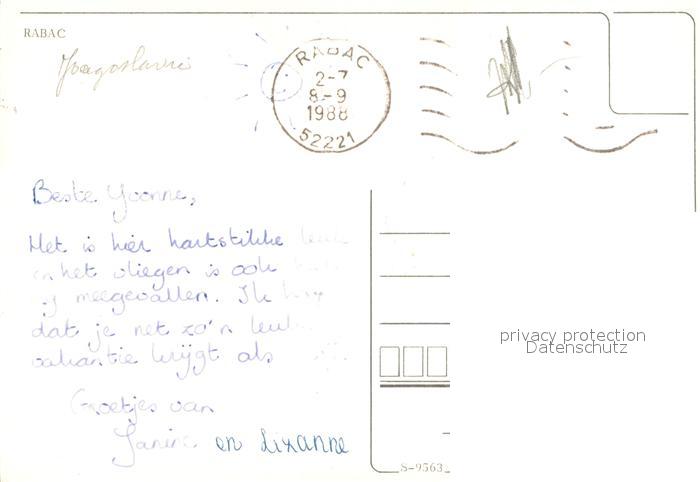 RABAC
Joegoslavië
RABAC
2-7
8-9
1988
52221
Beste Yvonne,
Het is hier hartstikke leuk
en het vliegen is ook
meegevallen. Ik
dat je net zo'n leuke
vakantie krijgt als
Groetjes van
Janine en Lixanne
privacy protection
Datenschutz
S-9563